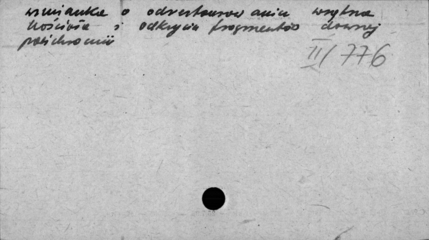 wzmianka o odrestaurowaniu wnętrza
kościoła i odkryciu fragmentów dawnej
polichromii
II/776